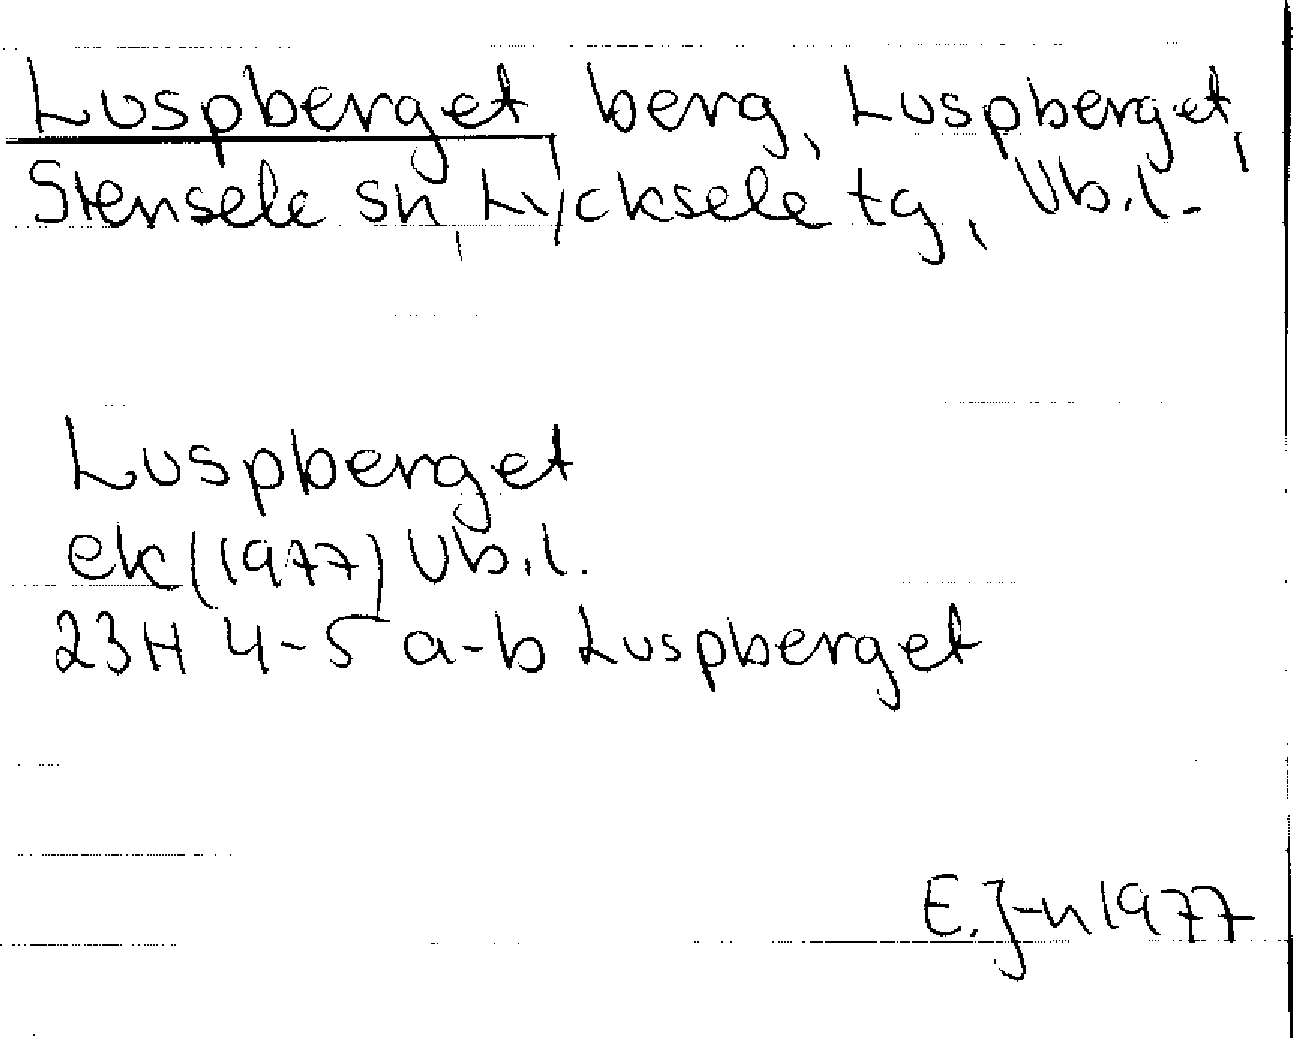 Luspberget berg, Luspberget,
Stensele sn, Lycksele tg, Vb.l.
Luspberget
ek (1977) Vb.l.
23H 4-5 a-b Luspberget
E.J-n 1977